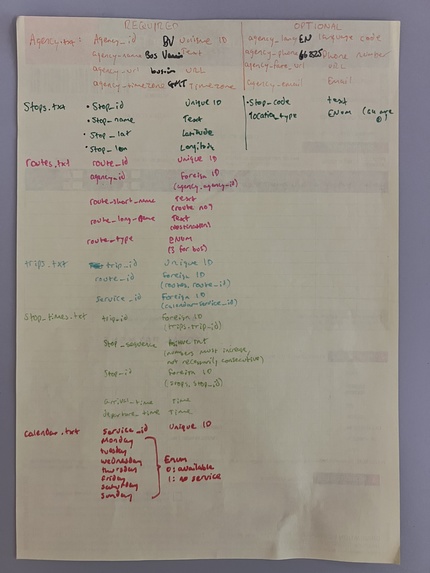 REQUIRED OPTIONAL
Agency.txt: Agency_id BV Unique ID agency_lang EN language code
agency_name Bos Text agency_phone Phone number
agency_url URL agency_fare_url URL
agency_timezone GMT Timezone agency_email Email
Stops.txt • Stop_id Unique ID • Stop_code text
• Stop_name Text location_type Enum
• Stop_lat Latitude
• Stop_lon Longitude
routes.txt route_id Unique ID
agency_id Foreign ID
(agency.agency_id)
route_short_name Text
(route no?
route_long_name Text
route_type Enum
(3 for bus)
trips.txt trip_id Unique ID
route_id Foreign ID
(routes.route_id)
service_id Foreign ID
(calendar.service_id)
Stop_times.txt trip_id Foreign ID
(trips.trip_id)
Stop_sequence
(numbers must increase,
not necessarily consecutive)
Stop_id Foreign ID
(stops.stop_id)
arrival_time Time
departure_time Time
Calendar.txt Service_id Unique ID
Monday
tuesday
wednesday Enum
thursday 0: available
friday 1: no service
saturday
Sunday